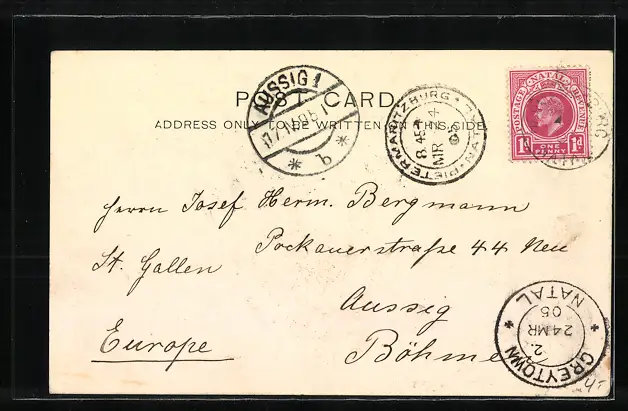 POST CARD.
ADDRESS ONLY TO BE WRITTEN ON THIS SIDE.
AUSSIG 1
* b *
PIETERMARITZBURG NATAL
8.45
MR
05
POSTAGE NATAL REVENUE
1d ONE PENNY 1d
Herrn Josef Herm. Bergmann
Pockauerstraße 44 Neu
St. Gallen
Aussig
Europe
Böhmen
GREYTOWN
24 MR
05
NATAL